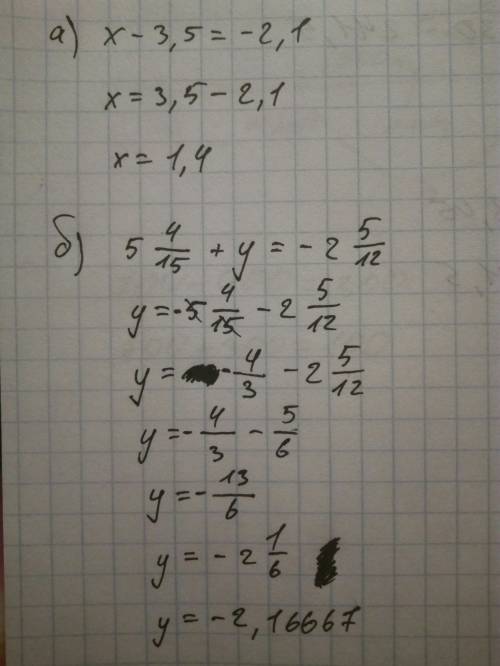 а) x - 3,5 = -2,1
x = 3,5 - 2,1
x = 1,4
б) 5 4/15 + y = -2 5/12
y = -5 4/15 - 2 5/12
y = -4/3 - 2 5/12
y = -4/3 - 5/6
y = -13/6
y = -2 1/6
y = -2,16667